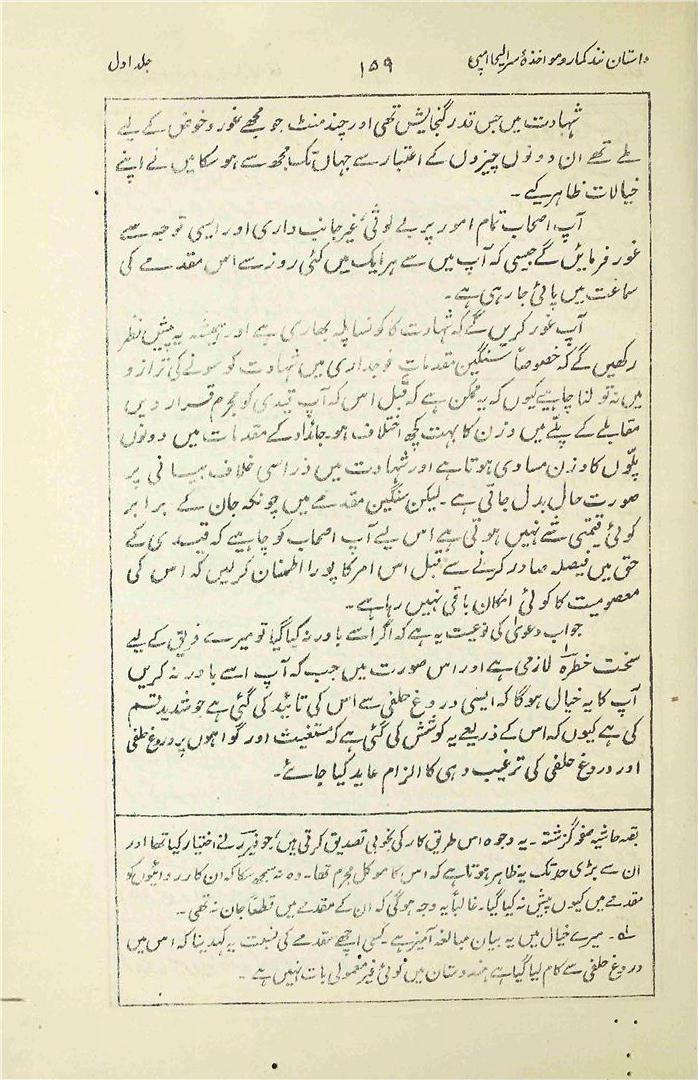 داستان نند کمار و مواخذۂ سر الیجا امپی
۱۵۹
جلد اول
شہادت میں جس قدر گنجایش تھی اور چند منٹ جو مجھے غور و خوض کے لیے
ملے تھے ان دونوں چیزوں کے اعتبار سے جہاں تک مجھ سے ہو سکا میں نے اپنے
خیالات ظاہر کیے ۔
آپ اصحاب تمام امور پر بے لوثی غیر جانب داری اور ایسی توجہ سے
غور فرمائیں گے جیسی کہ آپ میں سے ہر ایک میں کئی روز سے اس مقدمے کی
سماعت میں پائی جا رہی ہے ۔
آپ غور کریں گے کہ شہادت کا کونسا پلہ بھاری ہے اور ہمیشہ یہ پیش نظر
رکھیں گے کہ خصوصاً سنگین مقدمات فوجداری میں شہادت کو سونے کی ترازو
میں نہ تولنا چاہیے کیوں کہ یہ ممکن ہے کہ قبل اس کہ آپ قیدی کو مجرم قرار دیں
مقابلے کے پلّے میں وزن کا بہت کچھ اختلاف ہو ۔ جائداد کے مقدمات میں دونوں
پلّوں کا وزن مساوی ہوتا ہے اور شہادت میں ذرا سی خلاف بیانی پر
صورت حال بدل جاتی ہے ۔ لیکن سنگین مقدمے میں چونکہ جان کے برابر
کوئی قیمتی شے نہیں ہوتی ہے اس لیے آپ اصحاب کو چاہیے کہ قیدی کے
حق میں فیصلہ صادر کرنے سے قبل اس امر کا پورا اطمنان کرلیں کہ اس کی
معصومیت کا کوئی امکان باقی نہیں رہا ہے ۔
جواب دعویٰ کی نوعیت یہ ہے کہ اگر اسے باور نہ کیا گیا تو میرے فریق کے لیے
سخت خطرہ لازمی ہے اور اس صورت میں جب کہ آپ اسے باور نہ کریں
آپ کا یہ خیال ہوگا کہ ایسی دروغ حلفی سے اس کی تائید کی گئی ہے جو شدید قسم
کی ہے کیوں کہ اس کے ذریعے یہ کوشش کی گئی ہے کہ مستغیث اور گواہوں پر دروغ حلفی
اور دروغ حلفی کی ترغیب دہی کا الزام عاید کیا جائے ۔
بقیہ حاشیہ صفحہ گزشتہ ۔ یہ وجوہ اس طریق کار کی بخوبی تصدیق کرتی ہیں جو فیرر نے اختیار کیا تھا اور
ان سے بڑی حد تک یہ ظاہر ہوتا ہے کہ اس کا موکل مجرم تھا ۔ وہ نہ سمجھ سکا کہ ان کارروائیوں کو
مقدمے میں کیوں پیش نہ کیا گیا ۔ غالباً یہ وجہ ہوگی کہ ان کے مقدمے میں قطعاً جان نہ تھی ۔
لہ ۔ میرے خیال میں یہ بیان مبالغہ آمیز ہے ۔ کسی اچھے مقدمے کی نسبت یہ کہدینا کہ اس میں
دروغ حلفی سے کام لیا گیا ہے ہندوستان میں کوئی غیر معمولی بات نہیں ہے ۔